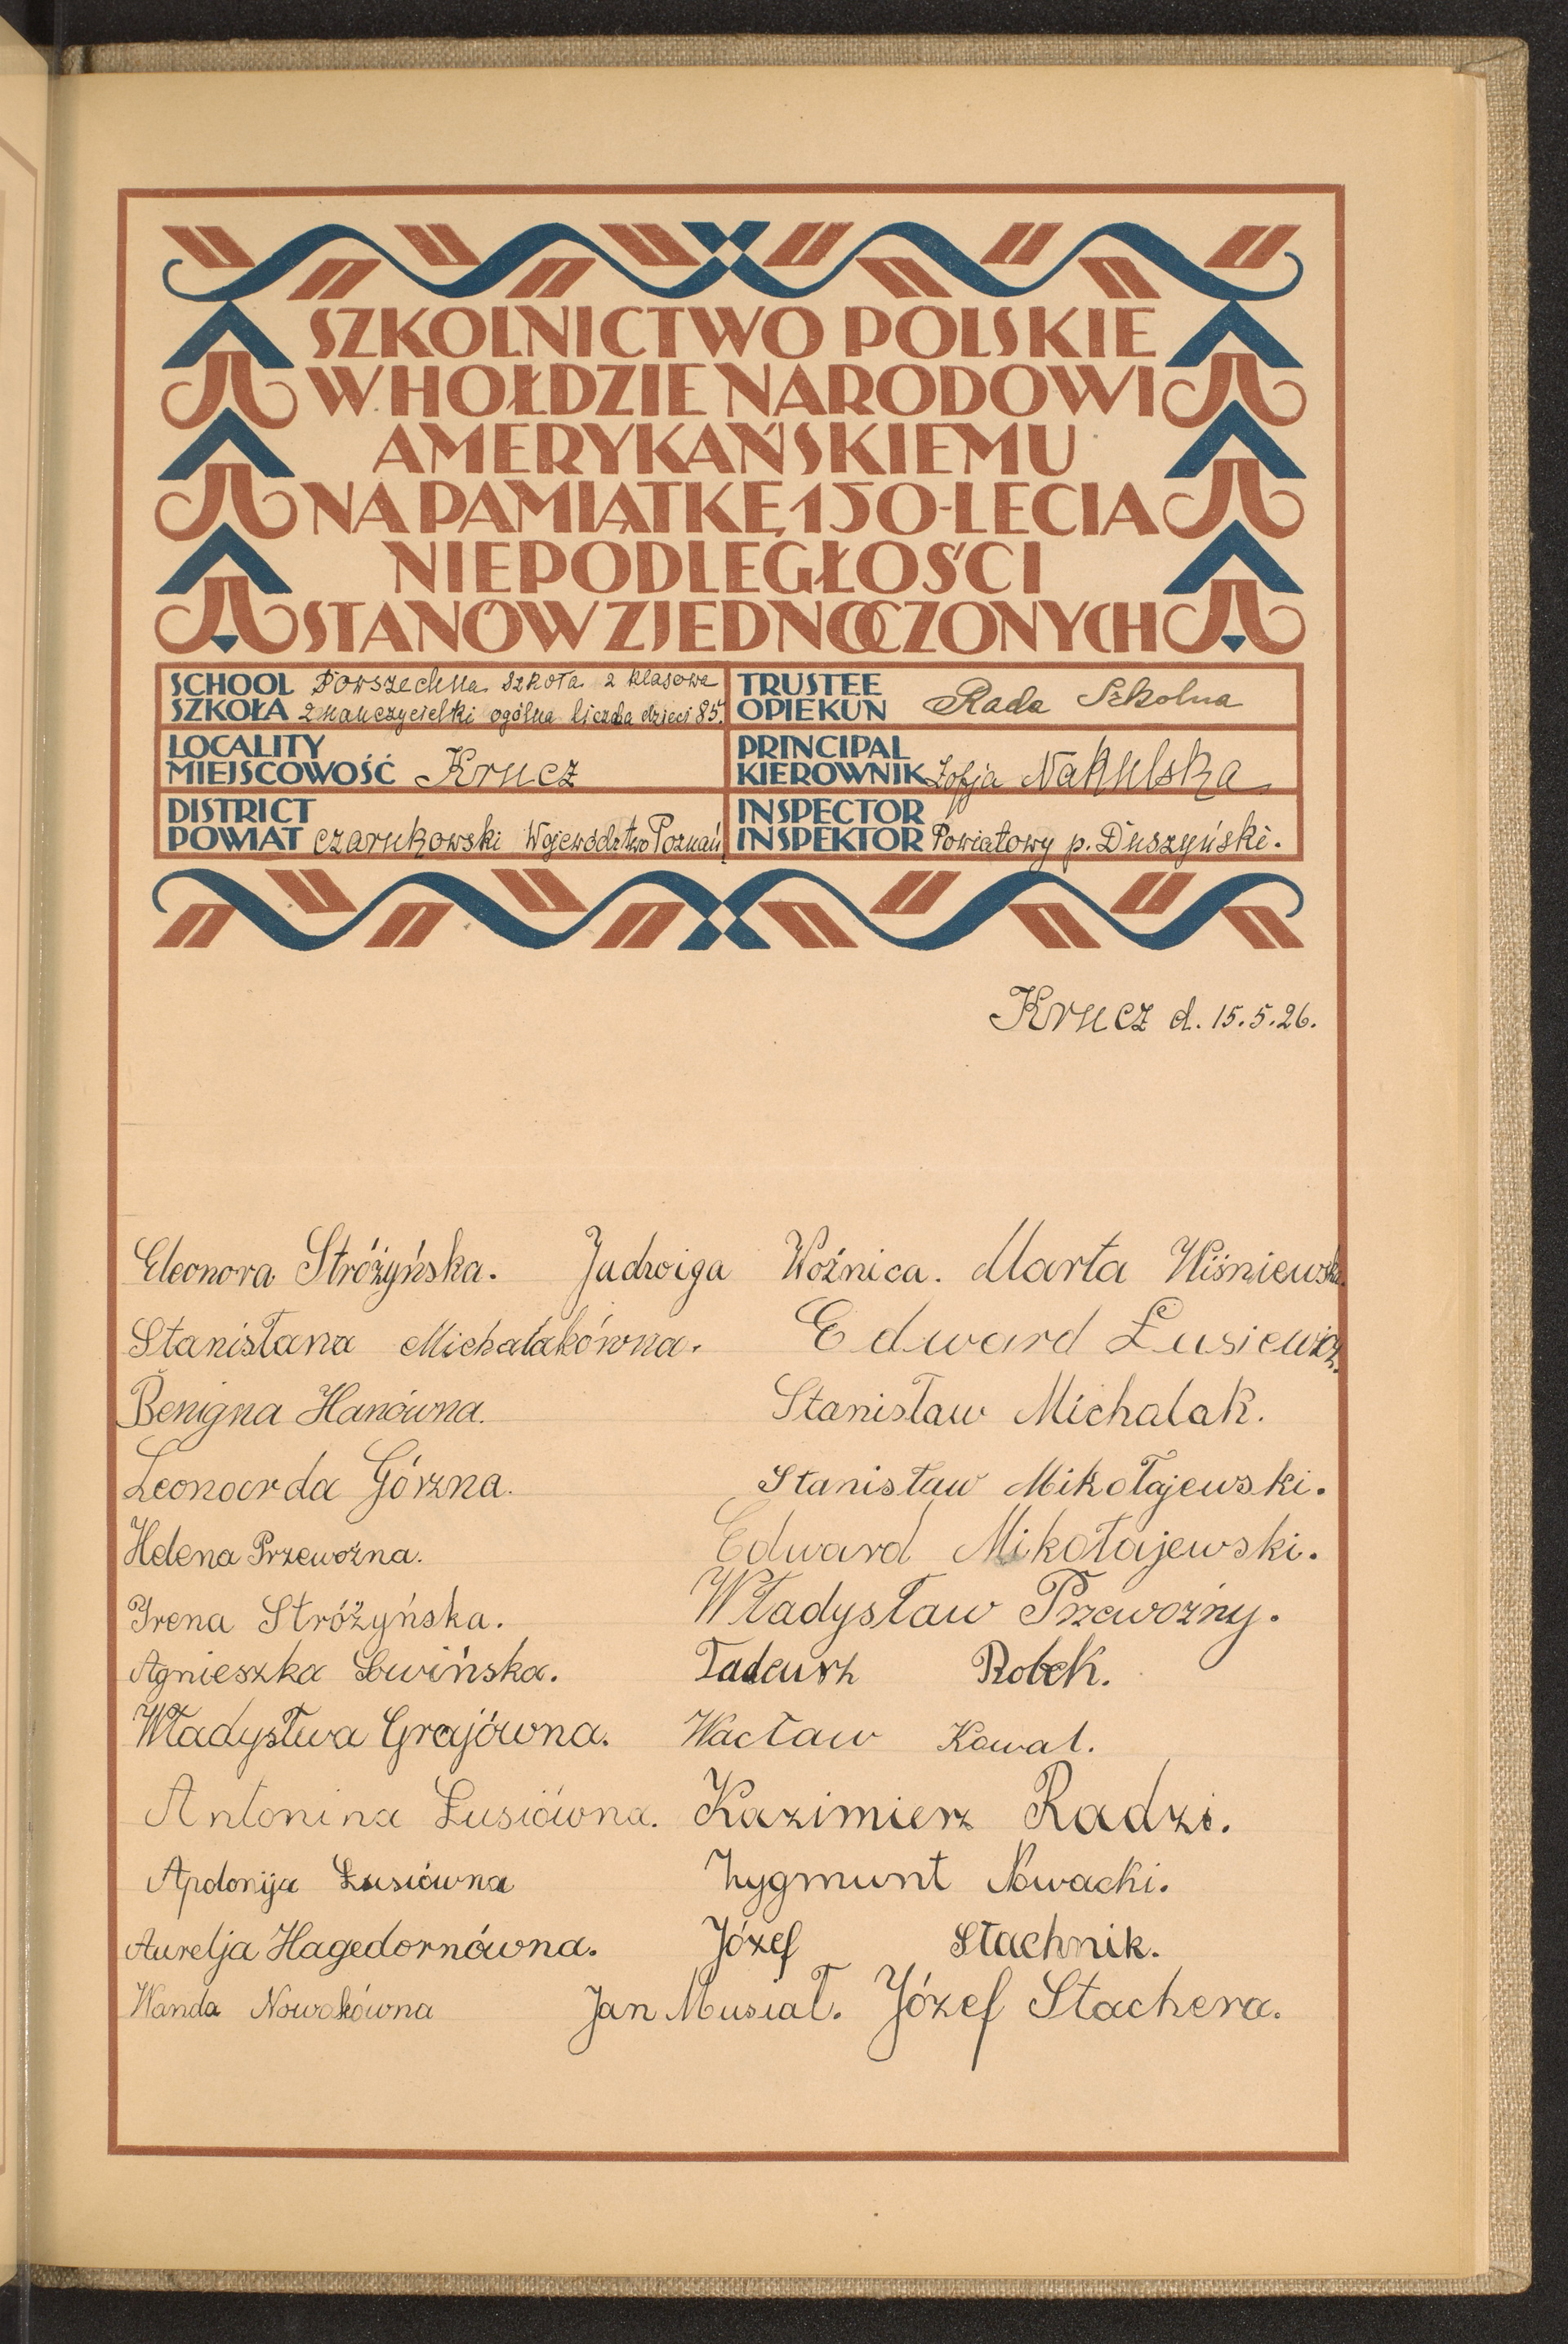 SZKOLNICTWO POLSKIE
W HOŁDZIE NARODOWI
AMERYKAŃSKIEMU
NA PAMIĄTKĘ 150-LECIA
NIEPODLEGŁOŚCI
STANÓW ZJEDNOCZONYCH
SCHOOL
SZKOŁA
Powszechna Szkoła 2 klasowa
2 nauczycielki ogólna liczba dzieci 85.
TRUSTEE
OPIEKUN
Rada Szkolna
LOCALITY
MIEJSCOWOŚĆ Krucz
PRINCIPAL
KIEROWNIK Zofja Nakulska
DISTRICT
POWIAT czarnkowski Województwo Poznań
INSPECTOR
INSPEKTOR Powiatowy p. Duszyński.
Krucz d. 15.5.26.
Eleonora Stróżyńska. Jadwiga Woźnica. Marta Wiśniewska
Stanisława Michalakówna. Edward Łusiewicz.
Benigna Hanówna. Stanisław Michalak.
Leonarda Górzna. Stanisław Mikołajewski.
Helena Przewoźna. Edward Mikołajewski.
Irena Stróżyńska. Władysław Przewoźny.
Agnieszka Lewińska. Tadeusz Robek.
Władysłwa Grajówna. Wacław Kowal.
Antonina Łusiówna. Kazimierz Radzi.
Apolonija Łusiówna Zygmunt Nowacki.
Aurelja Hagedornówna. Józef Stachnik.
Wanda Nowakówna Jan Musiał. Józef Stachera.